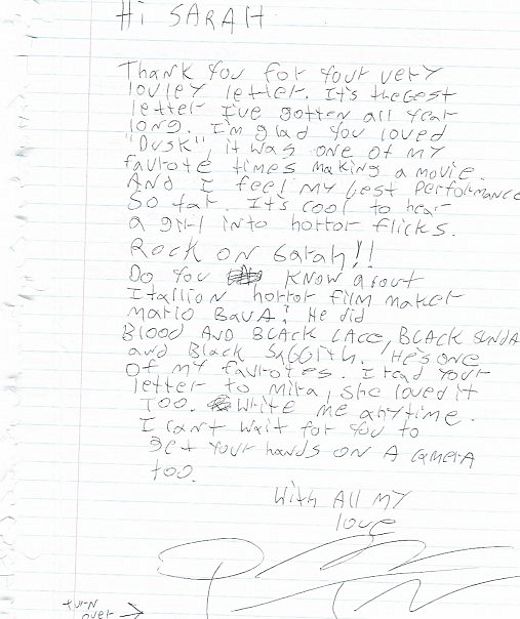 Hi SARAH
Thank you for your very
lovley letter. It's the best
letter I've gotten all year
long. I'm glad you loved
"Dusk", it was one of my
favrote times making a movie.
And I feel my best performance
So far. It's cool to hear
a girl into horror flicks.
Rock on Sarah!!
Do you know about
Itallion horror film maker
Mario Bava? He did
Blood and Black Lace, Black Sunda
and Black Sabbith. He's one
of my favrotes. I read your
letter to Mira, she loved it
too. Write me anytime.
I can't wait for you to
get your hands on a camera
too.
With all my
love
turn
over →